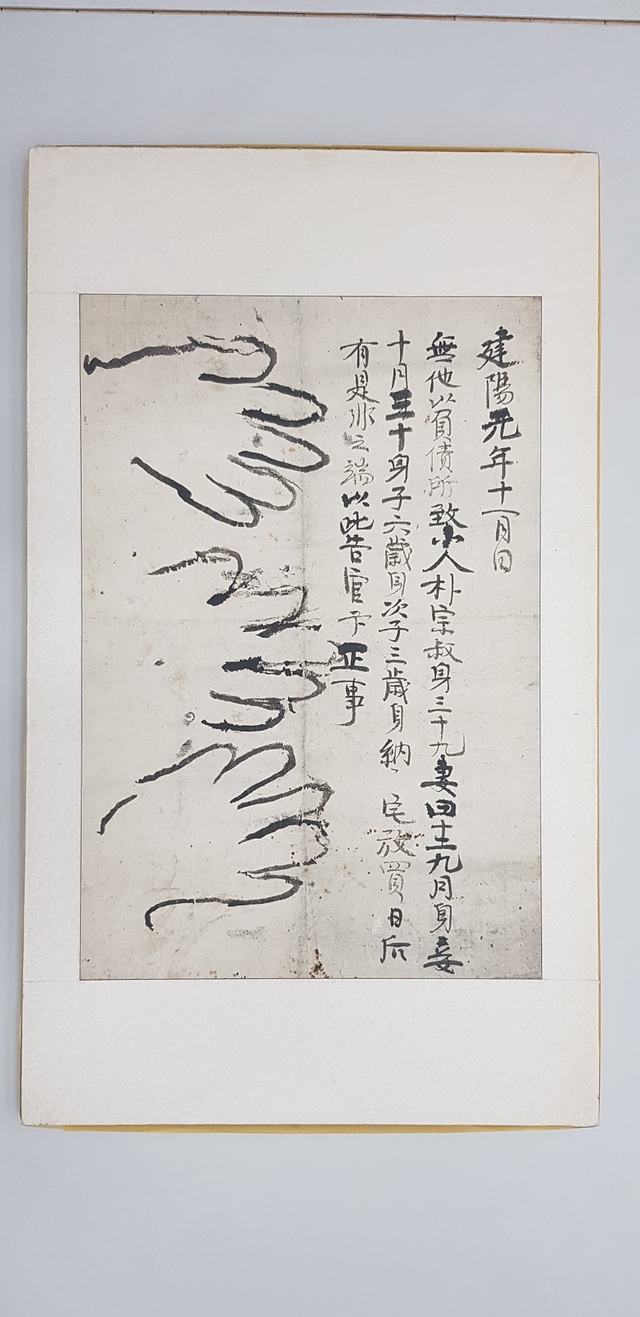 建陽元年十一月日
無他以負債所致小人朴宗叔身三十九妻四十九月身妾
十月三十身子六歲身次子三歲身納宅放買日后
有是非之端以此告官卞正事